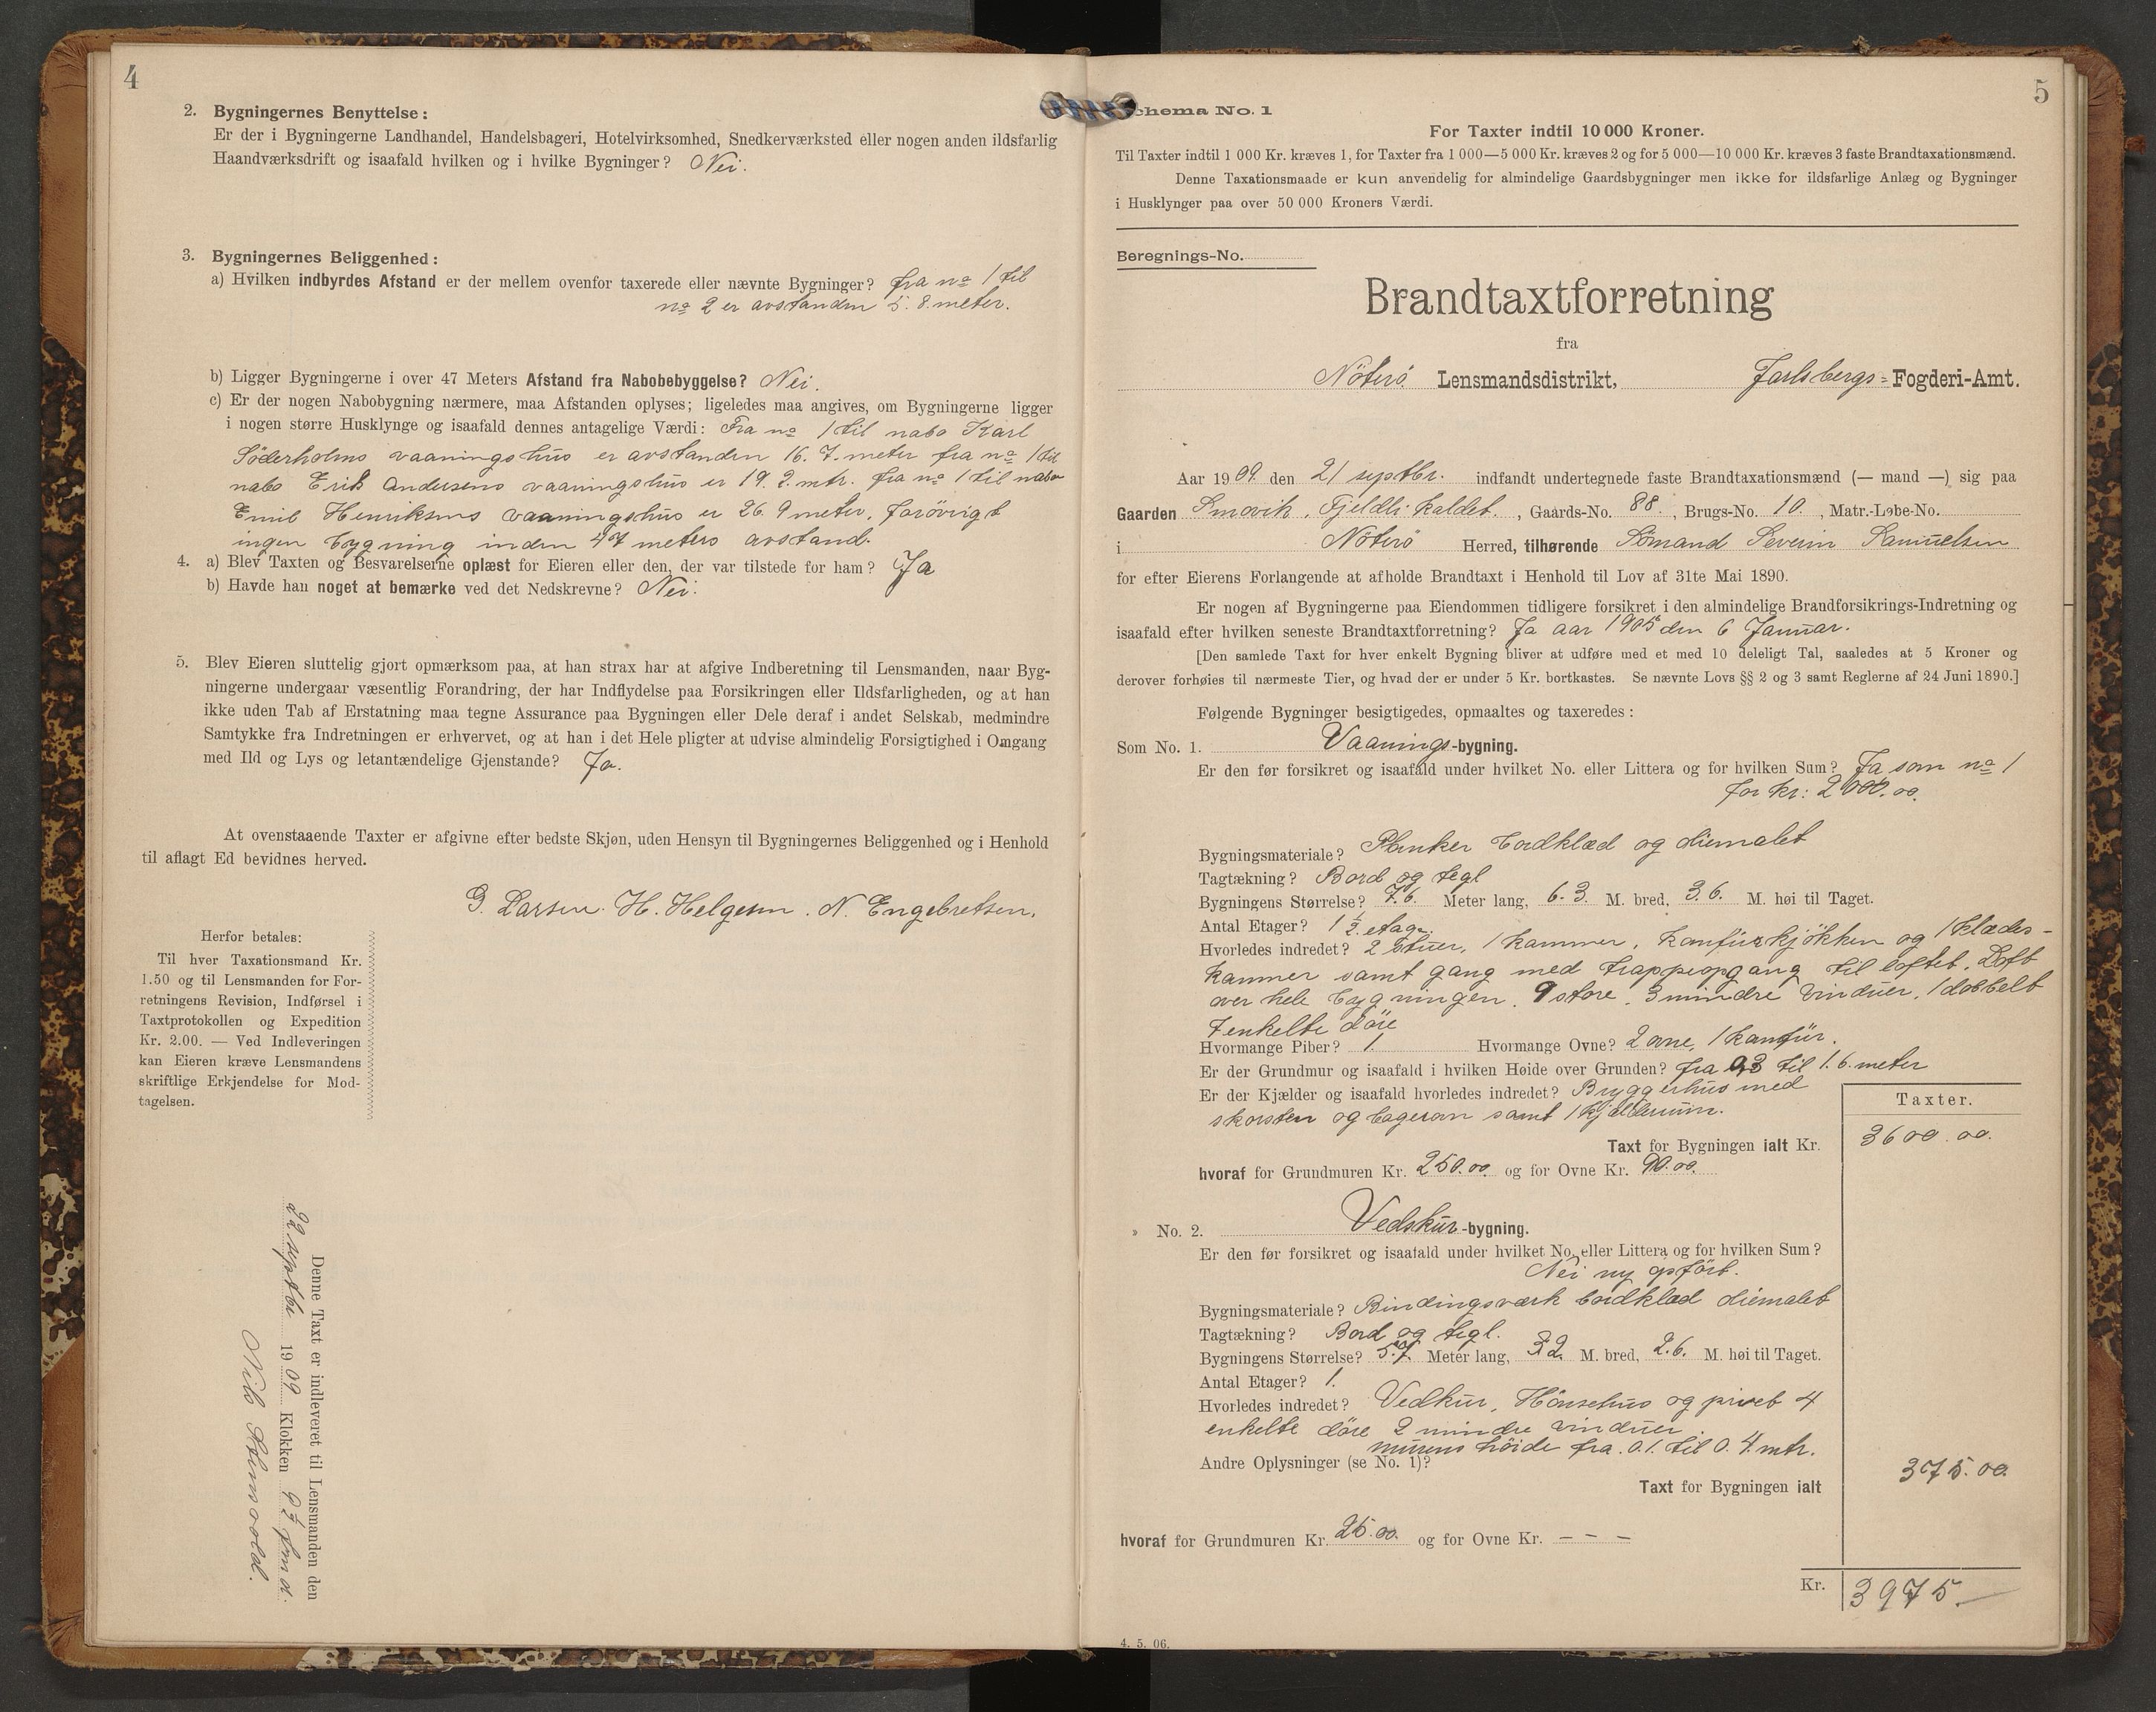 4
2. Bygningernes Benyttelse:
Er der i Bygningerne Landhandel, Handelsbageri, Hotelvirksomhed, Snedkerværksted eller nogen anden ildsfarlig
Haandværksdrift og isaafald hvilken og i hvilke Bygninger? Nei.
3. Bygningernes Beliggenhed:
a) Hvilken indbyrdes Afstand er der mellem ovenfor taxerede eller nævnte Bygninger? fra no 1 til
no 2 er avstanden 5.8. meter.
b) Ligger Bygningerne i over 47 Meters Afstand fra Nabobebyggelse? Nei.
c) Er der nogen Nabobygning nærmere, maa Afstanden oplyses; ligeledes maa angives, om Bygningerne ligger
i nogen større Husklynge og isaafald dennes antagelige Værdi: Fra no 1 til nabo Karl
Söderholms vaaningshus er avstanden 16.7. meter fra no 1 til
nabo Erik Andersens vaaningshus er 19.2. mtr. fra no 1 til nabo
Emil Henriksens vaaningshus er 26.9 meter, forövrigt
ingen bygning inden 47 meters avstand.
4. a) Blev Taxten og Besvarelserne oplæst for Eieren eller den, der var tilstede for ham? Ja
b) Havde han noget at bemærke ved det Nedskrevne? Nei.
5. Blev Eieren sluttelig gjort opmærksom paa, at han strax har at afgive Indberetning til Lensmanden, naar Byg-
ningerne undergaar væsentlig Forandring, der har Indflydelse paa Forsikringen eller Ildsfarligheden, og at han
ikke uden Tab af Erstatning maa tegne Assurance paa Bygningen eller Dele deraf i andet Selskab, medmindre
Samtykke fra Indretningen er erhvervet, og at han i det Hele pligter at udvise almindelig Forsigtighed i Omgang
med Ild og Lys og letantændelige Gjenstande? Ja.
At ovenstaaende Taxter er afgivne efter bedste Skjøn, uden Hensyn til Bygningernes Beliggenhed og i Henhold
til aflagt Ed bevidnes herved.
G. Larsen. H. Helgesen. N. Engebretsen.
Herfor betales:
Til hver Taxationsmand Kr.
1.50 og til Lensmanden for For-
retningens Revision, Indførsel i
Taxtprotokollen og Expedition
Kr. 2.00. — Ved Indleveringen
kan Eieren kræve Lensmandens
skriftlige Erkjendelse for Mod-
tagelsen.
Denne Taxt er indleveret til Lensmanden den
22 septbr 1909 Klokken 9½ fmd.
Nils
5
Schema No. 1
For Taxter indtil 10 000 Kroner.
Til Taxter indtil 1 000 Kr. kræves 1, for Taxter fra 1 000—5 000 Kr. kræves 2 og for 5 000—10 000 Kr. kræves 3 faste Brandtaxationsmænd.
Denne Taxationsmaade er kun anvendelig for almindelige Gaardsbygninger men ikke for ildsfarlige Anlæg og Bygninger
i Husklynger paa over 50 000 Kroners Værdi.
Beregnings-No.
Brandtaxtforretning
fra
Nöterö Lensmandsdistrikt, Jarlsbergs=Fogderi-Amt.
Aar 1909. den 21 septbr. indfandt undertegnede faste Brandtaxationsmænd (— mand —) sig paa
Gaarden Smovik, Fjeldli kaldet., Gaards-No. 88., Brugs-No. 10., Matr.-Løbe-No.
i Nöterö Herred, tilhørende Sömand Severin Samuelsen
for efter Eierens Forlangende at afholde Brandtaxt i Henhold til Lov af 31te Mai 1890.
Er nogen af Bygningerne paa Eiendommen tidligere forsikret i den almindelige Brandforsikrings-Indretning og
isaafald efter hvilken seneste Brandtaxtforretning? Ja aar 1905 den 6 Januar.
[Den samlede Taxt for hver enkelt Bygning bliver at udføre med et med 10 deleligt Tal, saaledes at 5 Kroner og
derover forhøies til nærmeste Tier, og hvad der er under 5 Kr. bortkastes. Se nævnte Lovs §§ 2 og 3 samt Reglerne af 24 Juni 1890.]
Følgende Bygninger besigtigedes, opmaaltes og taxeredes:
Som No. 1. Vaanings-bygning.
Er den før forsikret og isaafald under hvilket No. eller Littera og for hvilken Sum? Ja som no 1
for kr: 2000.00.
Bygningsmateriale? Planker bordklæd og oliemalet
Tagtækning? Bord og tegl
Bygningens Størrelse? 7.6. Meter lang, 6.3. M. bred, 3.6. M. høi til Taget.
Antal Etager? 1½ etage.
Hvorledes indredet? 2 stuer, 1 kammer, komfürkjökken og 1 klædes-
kammer samt gang med trappeopgang til loftet. Loft
over hele bygningen. 9 store. 3 mindre vinduer. 1 dobbelt
7 enkelte döre
Hvormange Piber? 1. Hvormange Ovne? 2 ovne, 1 komfür.
Er der Grundmur og isaafald i hvilken Høide over Grunden? fra 0,3 til 1.6. meter
Er der Kjælder og isaafald hvorledes indredet? Bryggerhus med
skorsten og bagerovn samt 1 kjelderrum.
Taxter.
Taxt for Bygningen ialt Kr. 3600.00.
hvoraf for Grundmuren Kr. 250.00 og for Ovne Kr. 90.00.
» No. 2. Vedskur-bygning.
Er den før forsikret og isaafald under hvilket No. eller Littera og for hvilken Sum?
Nei ny opfört.
Bygningsmateriale? Bindingsværk bordklæd oliemalet
Tagtækning? Bord og tegl.
Bygningens Størrelse? 5.7. Meter lang, 3.2. M. bred, 2.6. M. høi til Taget.
Antal Etager? 1.
Hvorledes indredet? Vedkur, Hönsehus og privet 4
enkelte döre 2 mindre vinduer.
murens höide fra. 0.1. til 0.4. mtr.
Andre Oplysninger (se No. 1)?
Taxt for Bygningen ialt 375.00.
hvoraf for Grundmuren Kr. 25.00. og for Ovne Kr. – – –
Kr. 3975.—
4. 5. 06.